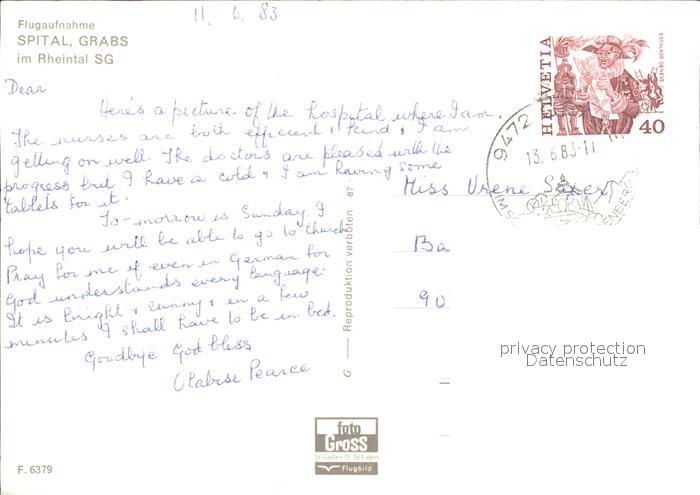 11. 6. 83.
Flugaufnahme
SPITAL, GRABS
im Rheintal SG
Dear
Here's a picture of the hospital where I am.
The nurses are both efficient & kind & I am
getting on well. The doctors are pleased with the
progress but I have a cold & I am having some
tablets for it.
To-morrow is Sunday. I
hope you will be able to go to church
Pray for me if even in German for
God understands every language.
It is bright & sunny & in a few
minutes I shall have to be in bed.
Goodbye God bless
Pearce
HELVETIA
ESCALADE GENÈVE
40
9472
13. 6.83-11
Miss Vrene
Ba
90
G — Reproduktion verboten 87
privacy protection
Datenschutz
foto
Gross
St Gallen O St Fiden
Flugbild
F. 6379